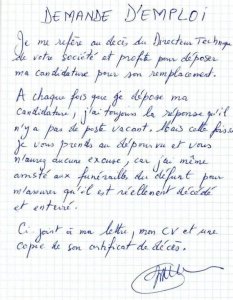 DEMANDE D'EMPLOI
Je me refère au decès du Directeur Technique
de votre société et profite pour déposer
ma candidature pour son remplacement.
A chaque fois que je dépose ma
candidature, j'ai toujours la réponse qu'il
n'y a pas de poste vacant. Mais cette fois-ci
je vous prends au dépourvu et vous
n'aurez aucune excuse, car j'ai même
assisté aux funérailles du défunt pour
m'assurer qu'il est réellement décédé
et enterré.
Ci joint à ma lettre, mon CV et une
copie de son certificat de décès.